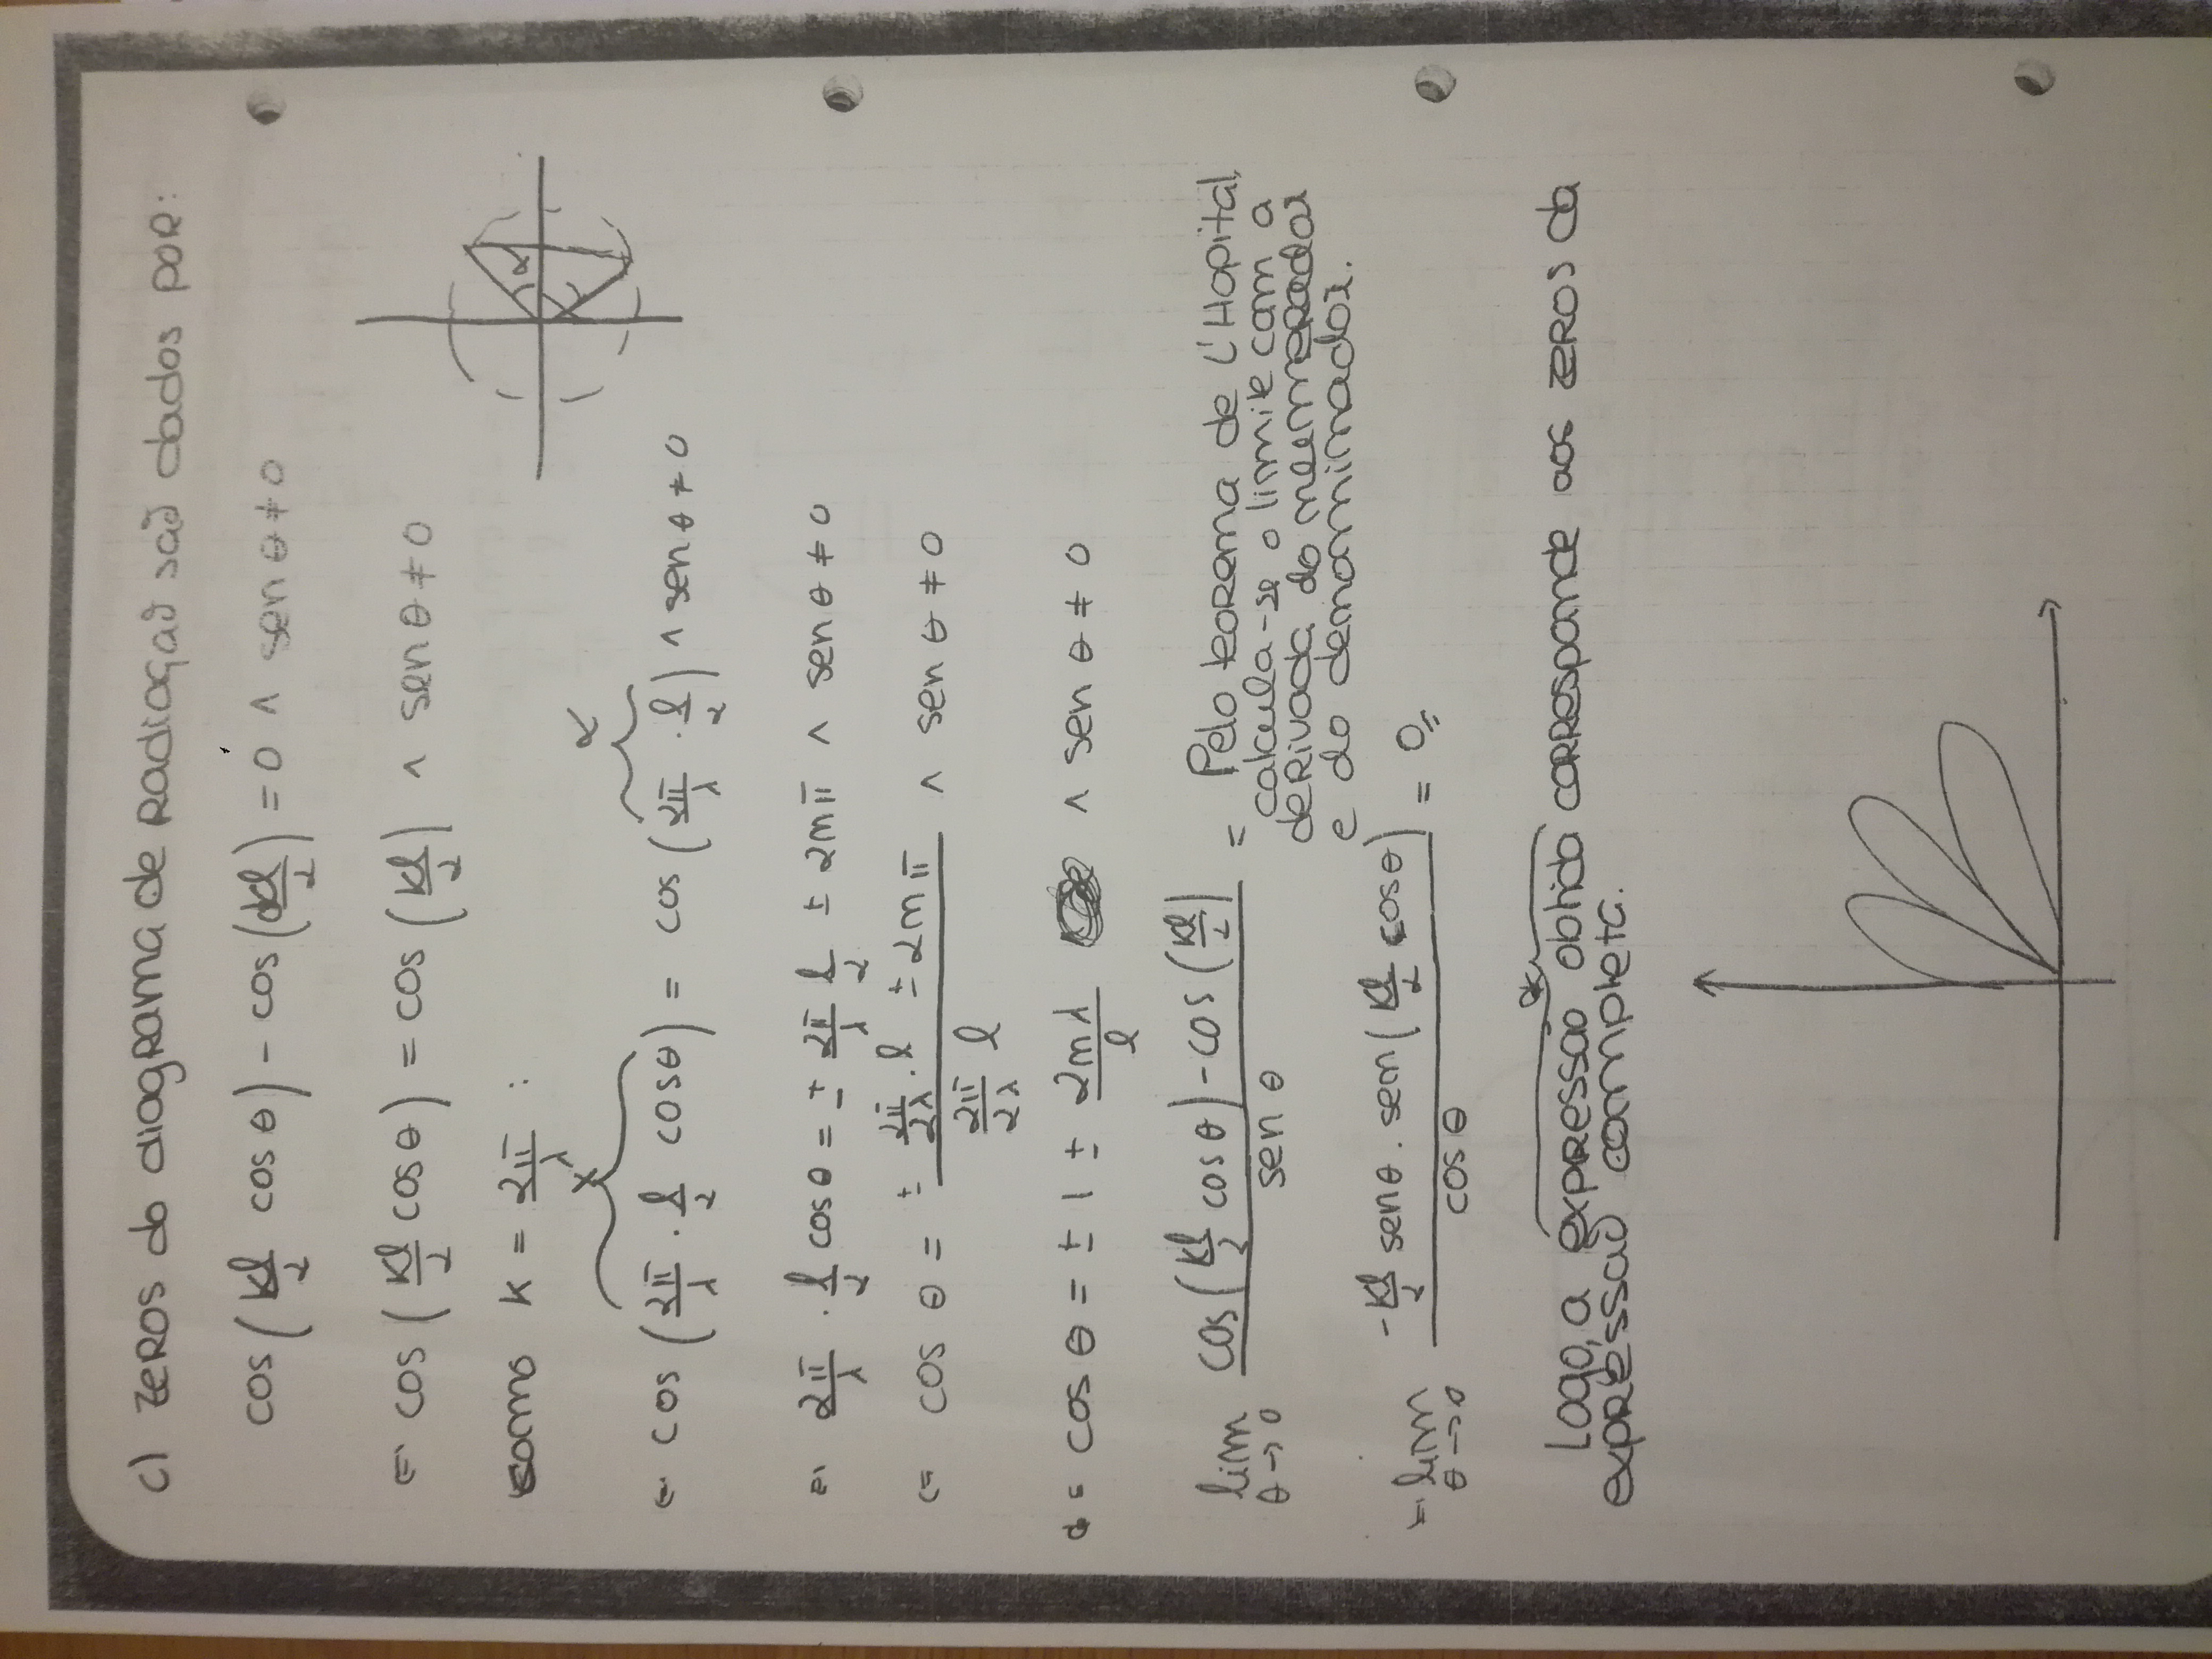 c) zeros do diagrama de Radiação são dados por:
cos (kl/2 cos θ) - cos (kl/2) = 0 ∧ sen θ ≠ 0
⇔ cos (kl/2 cos θ) = cos (kl/2) ∧ sen θ ≠ 0
como k = 2π/λ :
x α
α
⇔ cos (2π/λ . l/2 cos θ) = cos (2π/λ . l/2) ∧ sen θ ≠ 0
⇔ 2π/λ . l/2 cos θ = ± 2π/λ l/2 ± 2nπ ∧ sen θ ≠ 0
⇔ cos θ = (± 2π/2λ . l ± 2nπ) / (2π/2λ l) ∧ sen θ ≠ 0
⇔ cos θ = ± 1 ± 2nλ/l ∧ sen θ ≠ 0
lim θ→0 (cos (kl/2 cos θ) - cos (kl/2)) / sen θ = Pelo teorema de L'Hopital,
calcula-se o limite com a
derivada do numerador
e do denominador.
= lim θ→0 (-kl/2 sen θ . sen (kl/2 cos θ)) / cos θ = 0
Logo, a expressão obtida corresponde aos zeros da
expressão completa.